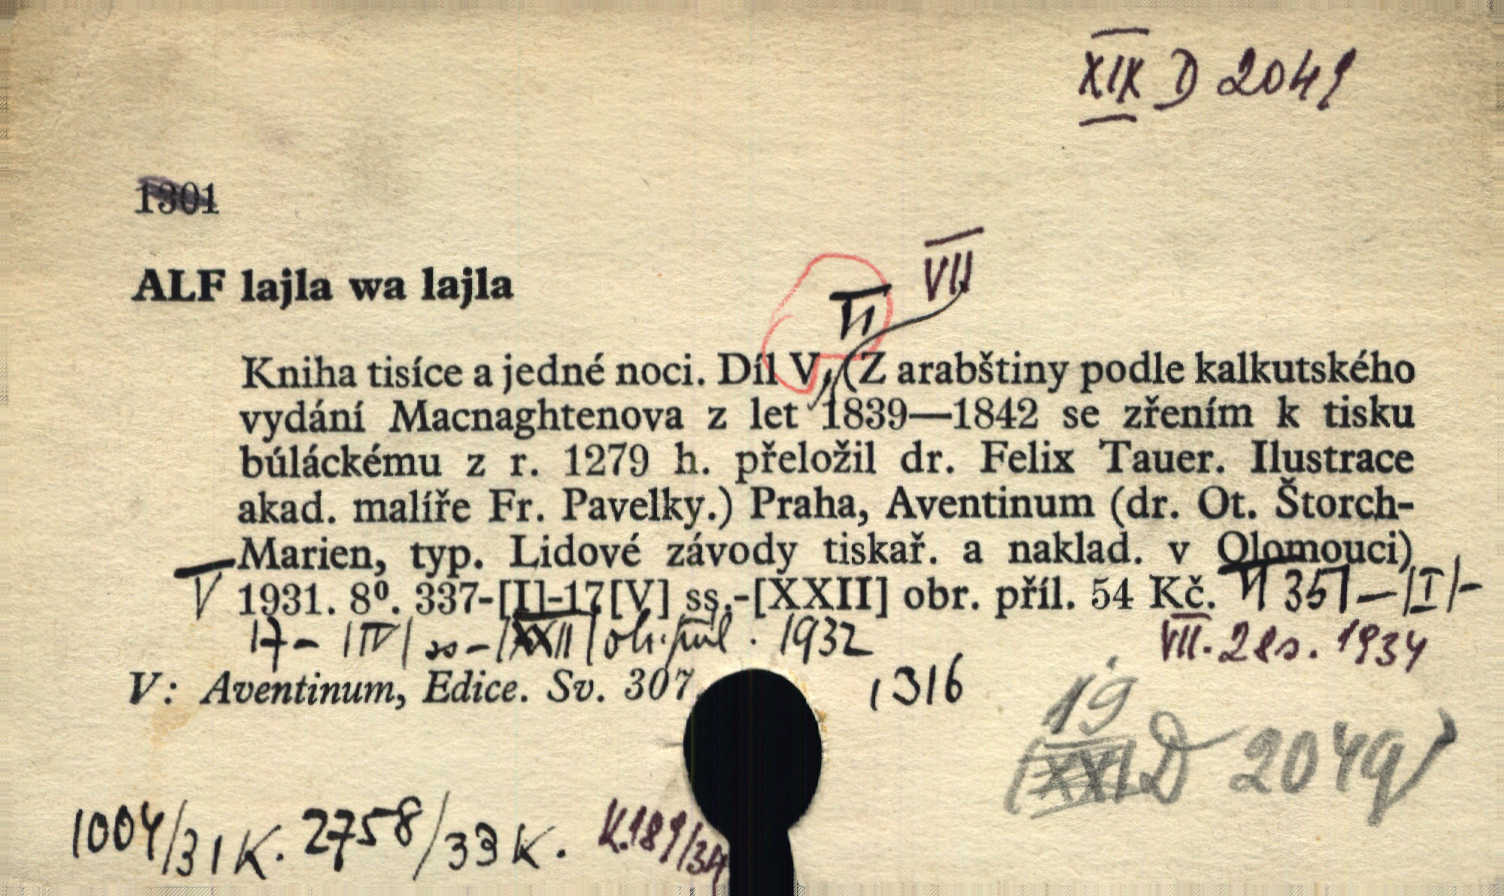 XIX D 2049
1301
ALF lajla wa lajla
VII
VI
Kniha tisíce a jedné noci. Díl V, (Z arabštiny podle kalkutského
vydání Macnaghtenova z let 1839—1842 se zřením k tisku
búláckému z r. 1279 h. přeložil dr. Felix Tauer. Ilustrace
akad. malíře Fr. Pavelky.) Praha, Aventinum (dr. Ot. Štorch-
Marien, typ. Lidové závody tiskař. a naklad. v Olomouci)
V 1931. 8⁰. 337-[I]-17[V] ss.-[XXII] obr. příl. 54 Kč. VI 351-|I|-
17-|IV| ss-|XXII| obr. příl. 1932 VII. 2 ls. 1934
V: Aventinum, Edice. Sv. 307, 316
19
D 2049
1004/31 K. 2758/33 K. K.189/34